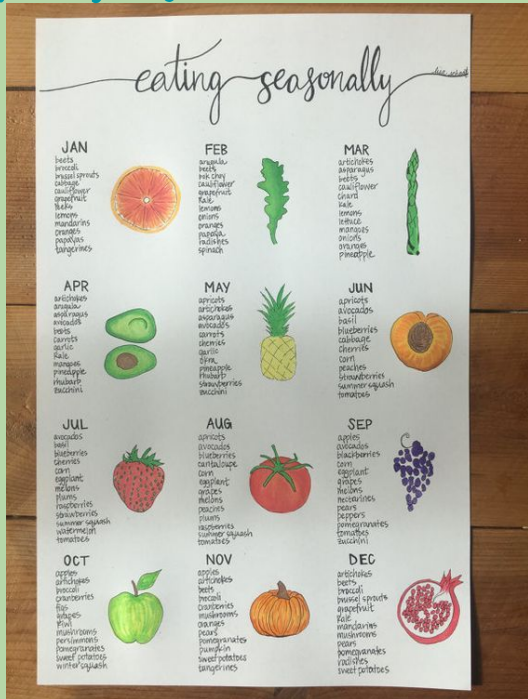 eating seasonally
JAN
beets
broccoli
brussel sprouts
cabbage
cauliflower
grapefruit
leeks
lemons
mandarins
oranges
papayas
tangerines
FEB
arugula
beets
bok choy
cauliflower
grapefruit
kale
lemons
onions
oranges
papaya
radishes
spinach
MAR
artichokes
asparagus
beets
cauliflower
chard
kale
lemons
lettuce
mangoes
onions
oranges
pineapple
APR
artichokes
arugula
asparagus
avocados
beets
carrots
garlic
kale
mangoes
pineapple
rhubarb
zucchini
MAY
apricots
artichokes
asparagus
avocados
carrots
cherries
garlic
okra
pineapple
rhubarb
strawberries
zucchini
JUN
apricots
avocados
basil
blueberries
cabbage
cherries
corn
peaches
strawberries
summer squash
tomatoes
JUL
avocados
basil
blueberries
cherries
corn
eggplant
melons
plums
raspberries
strawberries
summer squash
watermelon
tomatoes
AUG
apricots
avocados
blueberries
cantaloupe
corn
eggplant
grapes
melons
peaches
plums
raspberries
summer squash
tomatoes
SEP
apples
avocados
blackberries
corn
eggplant
grapes
melons
nectarines
pears
peppers
pomegranates
tomatoes
zucchini
OCT
apples
artichokes
broccoli
cranberries
figs
grapes
kiwi
mushrooms
persimmons
pomegranates
sweet potatoes
winter squash
NOV
apples
artichokes
beets
broccoli
cranberries
mushrooms
oranges
pears
pomegranates
pumpkin
sweet potatoes
tangerines
DEC
artichokes
beets
broccoli
brussel sprouts
grapefruit
kale
mandarins
mushrooms
pears
pomegranates
radishes
sweet potatoes